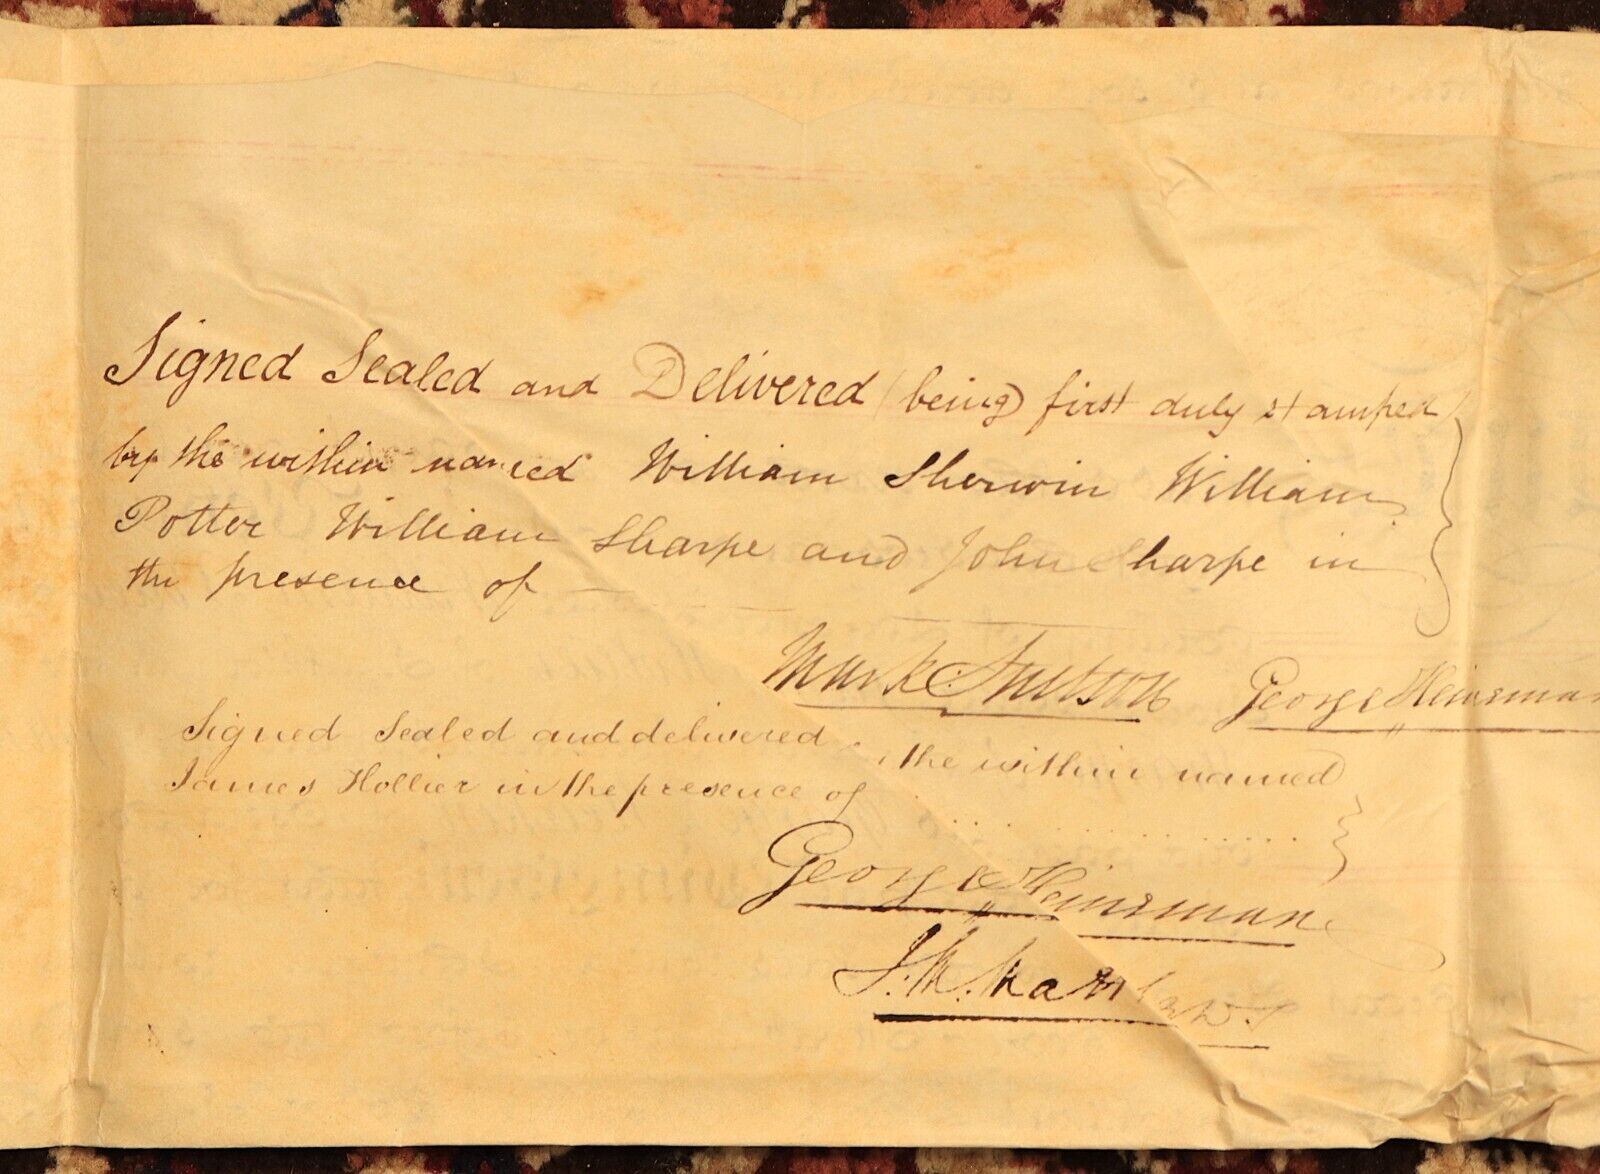 Signed Sealed and Delivered (being first duly stamped)
by the within named William Sherwin William
Potter William Sharpe and John Sharpe in
the presence of
Mark George Heinsman
Signed Sealed and delivered the within named
James Hollier in the presence of
George Heinsman
J. M.